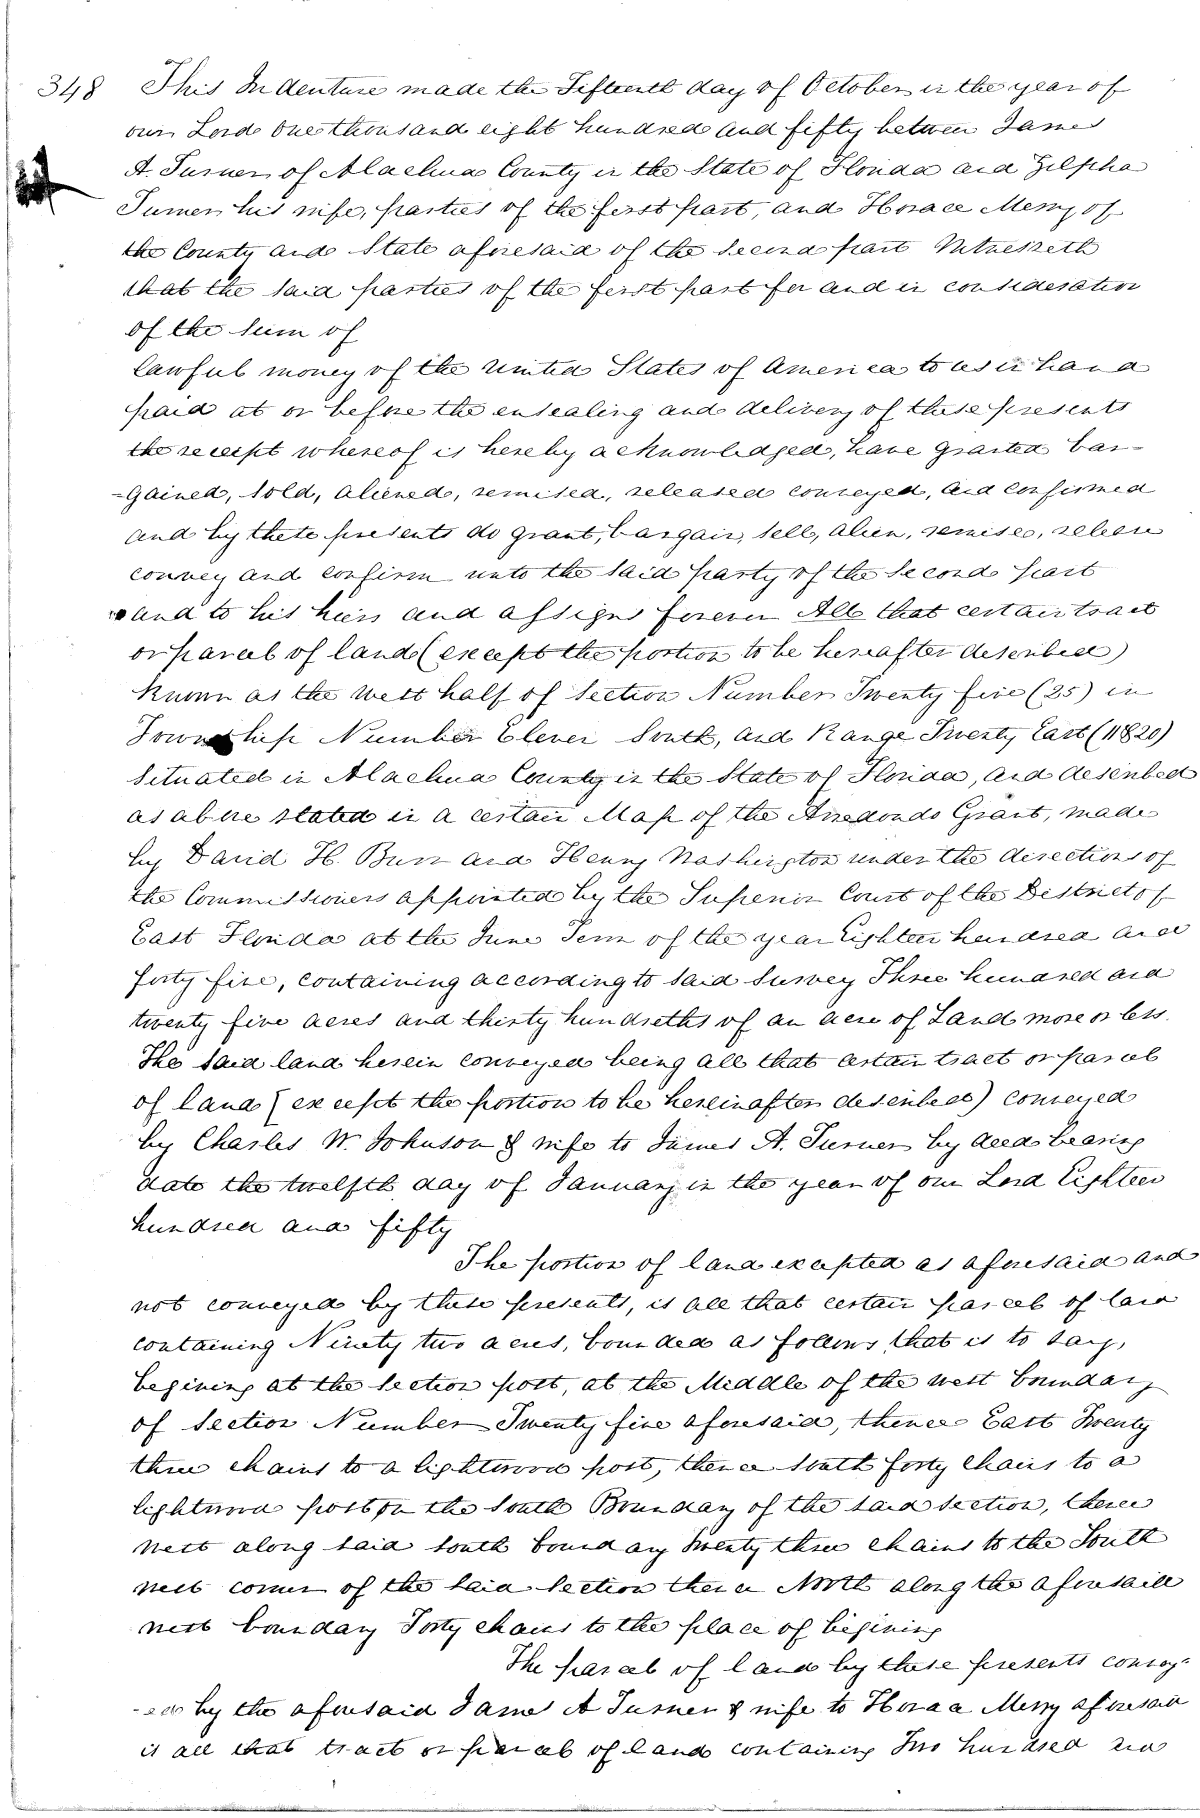 348 This Indenture made the Fifteenth day of October in the year of
our Lord One thousand eight hundred and fifty between James
A. Turner of Alachua County in the State of Florida and Zilpha
Turner his wife, parties of the first part, and Horace Merry of
the County and State aforesaid of the second part Witnesseth
that the said parties of the first part for and in consideration
of the sum of
lawful money of the United States of America to us in hand
paid at or before the ensealing and delivery of these presents
the receipt whereof is hereby acknowledged, have granted bar-
-gained, sold, aliened, remised, released conveyed, and confirmed
and by these presents do grant, bargain, sell, alien, remise, release
convey and confirm unto the said party of the second part
and to his heirs and assigns forever All that certain tract
or parcel of land (except the portion to be hereafter described)
known as the west half of Section Number Twenty five (25) in
Township Number Eleven South, and Range Twenty East (11&20)
situated in Alachua County in the State of Florida, and described
as above stated in a certain Map of the Arredondo Grant, made
by David H. Burr and Henry Washington under the directions of
the Commissioners appointed by the Superior Court of the District of
East Florida at the June Term of the year Eighteen hundred and
forty five, containing according to said Survey Three hundred and
twenty five acres and thirty hundreths of an acre of Land more or less.
The said land herein conveyed being all that certain tract or parcel
of land (except the portion to be hereinafter described) conveyed
by Charles W. Johnson & wife to James A. Turner by deed bearing
date the twelfth day of January in the year of our Lord Eighteen
hundred and fifty
The portion of land excepted as aforesaid and
not conveyed by these presents, is all that certain parcel of land
containing Ninety two acres, bounded as follows, that is to say,
begining at the section post, at the Middle of the west boundary
of Section Number Twenty five aforesaid, thence East Twenty
three chains to a lightwood post, thence South forty chains to a
lightwood post on the South Boundary of the said section, thence
West along said South boundary twenty three chains to the South
west corner of the said section thence North along the aforesaid
west boundary Forty chains to the place of begining
The parcel of land by these presents convey-
-ed by the aforesaid James A Turner & wife to Horace Merry aforesaid
is all that tract or parcel of land containing Two hundred and